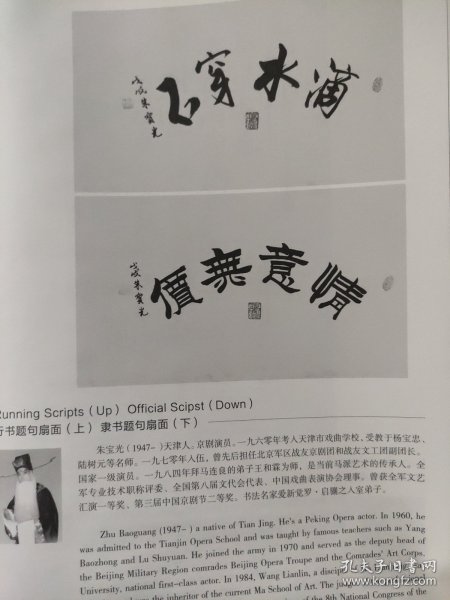 滴水穿石
戊戌 朱宝光
情意無價
戊戌 朱寶光
Running Scripts（Up） Official Scipst（Down）
行书题句扇面（上） 隶书题句扇面（下）
朱宝光（1947- ）天津人。京剧演员。一九六零年考入天津市戏曲学校，受教于杨宝忠、
陆树元等名师。一九七零年入伍，曾先后担任北京军区战友京剧团和战友文工团副团长。
国家一级演员。一九八四年拜马连良的弟子王和霖为师，是当前马派艺术的传承人。全
军专业技术职称评委、全国第八届文代会代表、中国戏曲表演协会理事。曾获全军文艺
汇演一等奖、第三届中国京剧节二等奖。书法名家爱新觉罗·启骧之入室弟子。
Zhu Baoguang (1947- ) a native of Tian Jing. He's a Peking Opera actor. In 1960, he
was admitted to the Tianjin Opera School and was taught by famous teachers such as Yang
Baozhong and Lu Shuyuan. He joined the army in 1970 and served as the deputy head of
the Beijing Military Region comrades Beijing Opera Troupe and the Comrades' Art Corps.
University, national first-class actor. In 1984, Wang Lianlin, a disciple
the inheritor of the current Ma School of Art. The
of the 8th National Congress of the
孔夫子旧书网